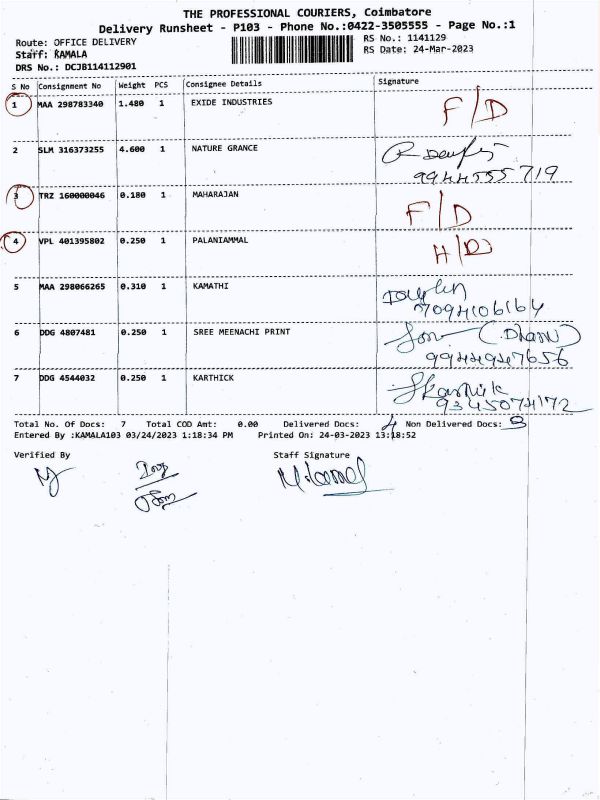 THE PROFESSIONAL COURIERS, Coimbatore
Delivery Runsheet - P103 - Phone No.:0422-3505555 - Page No.:1
Route: OFFICE DELIVERY
RS No.: 1141129
Staff: KAMALA
RS Date: 24-Mar-2023
DRS No.: DCJB114112901
S No Consignment No Weight PCS Consignee Details Signature
1 MAA 298783340 1.480 1 EXIDE INDUSTRIES F/D
2 SLM 316373255 4.600 1 NATURE GRANCE
9944555719
3 TRZ 160000046 0.180 1 MAHARAJAN F/D
4 VPL 401395802 0.250 1 PALANIAMMAL H/D
5 MAA 298066265 0.310 1 KAMATHI
7094106164
6 DDG 4807481 0.250 1 SREE MEENACHI PRINT (Dhanu)
9944947656
7 DDG 4544032 0.250 1 KARTHICK Karthick
9345074172
Total No. Of Docs: 7 Total COD Amt: 0.00 Delivered Docs: 4 Non Delivered Docs: 3
Entered By :KAMALA103 03/24/2023 1:18:34 PM Printed On: 24-03-2023 13:18:52
Verified By Staff Signature